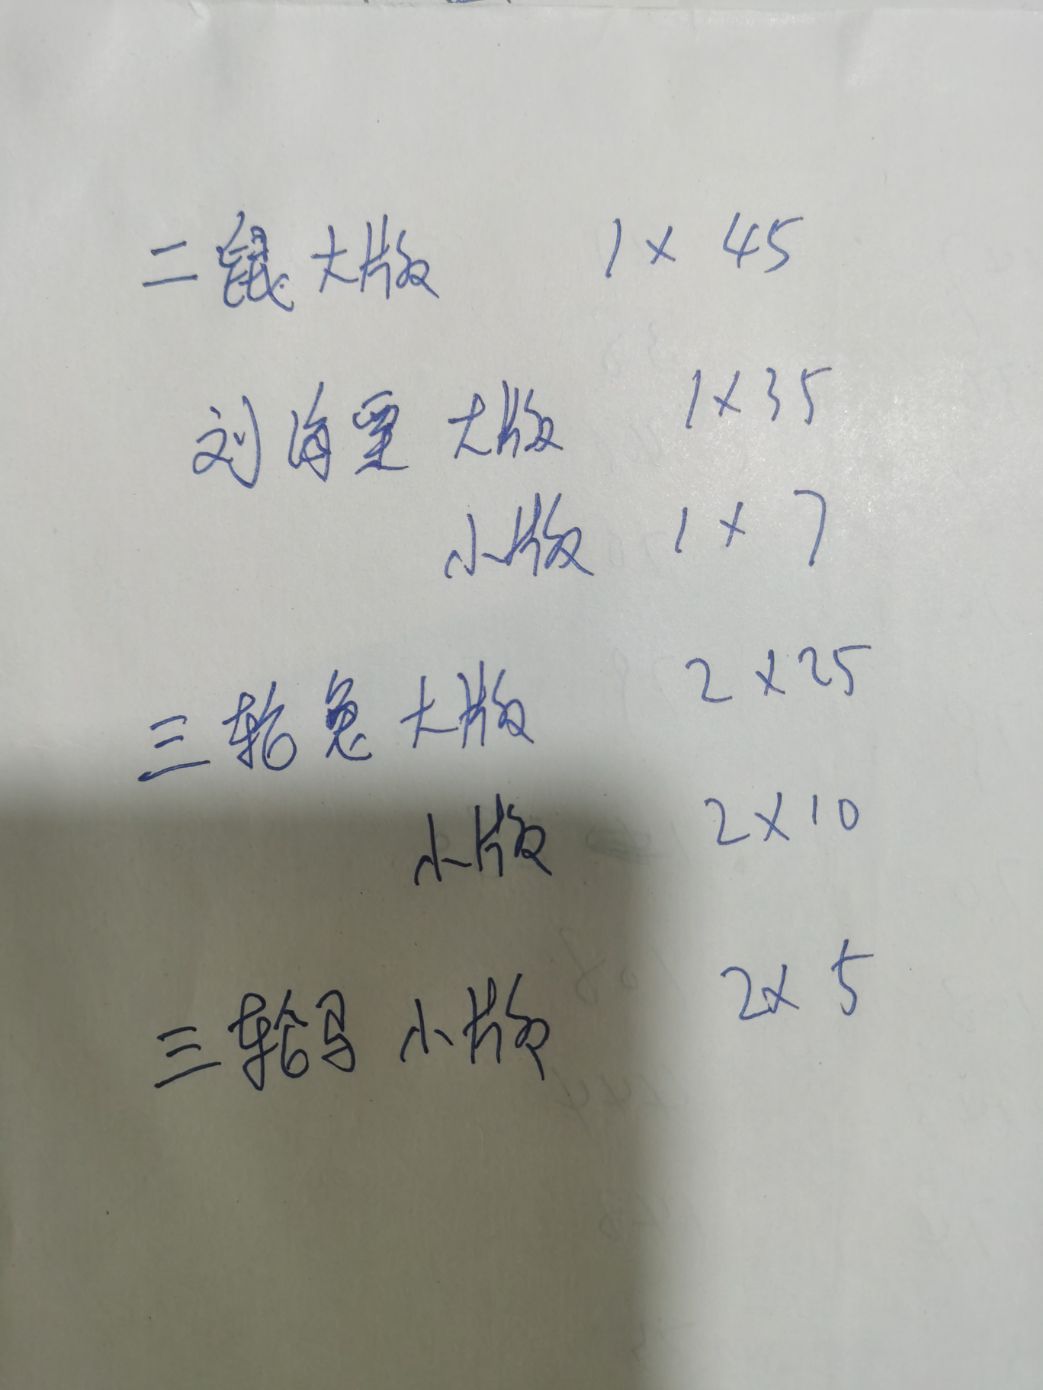 二鼠大版 1×45
刘海粟大版 1×35
小版 1×7
三轮兔大版 2×25
小版 2×10
三轮马小版 2×5